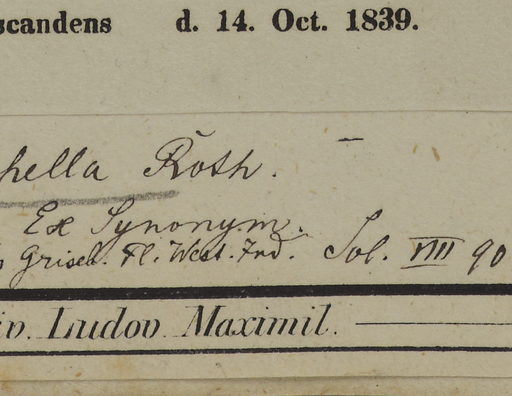 scandens d. 14. Oct. 1839.
hella Roth.
Ex Synonym.
Griseb. Fl. West. Ind. Sol. VIII 90
iv. Ludov. Maximil.